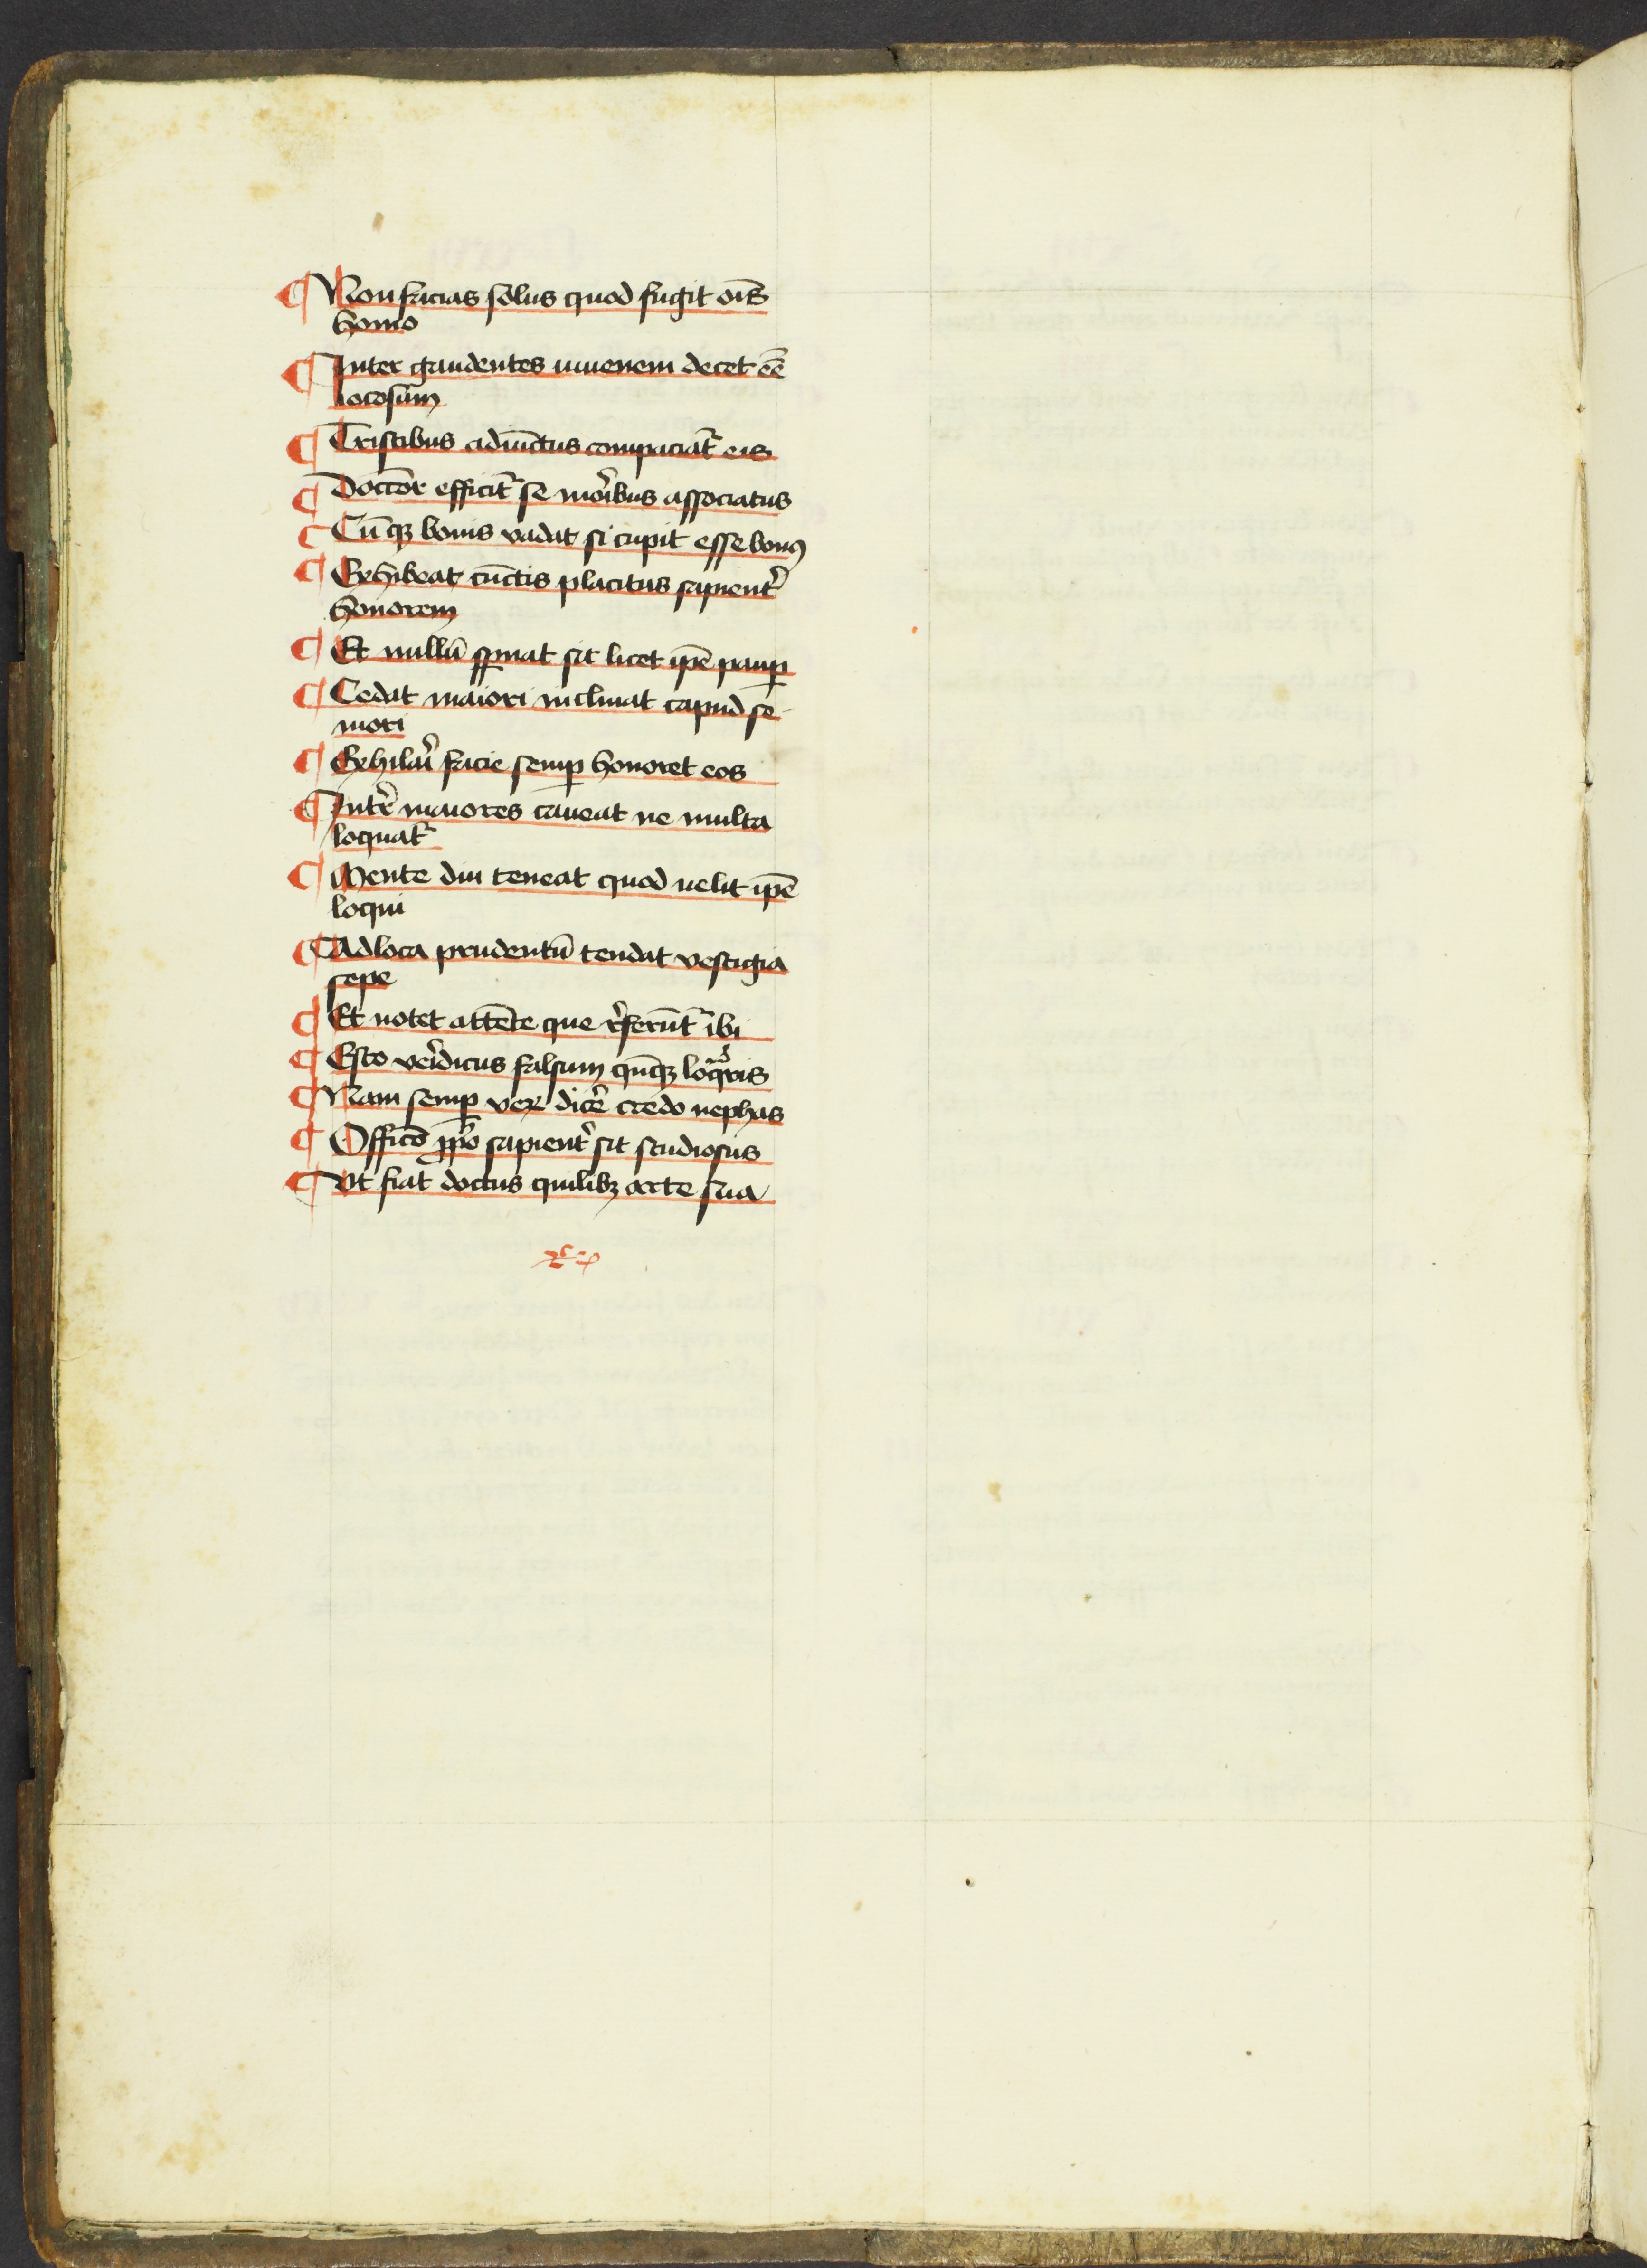 ¶ Non facias solus quod fugit oīs
homo
¶ Inter gaudentes iuuenem decet eē
iocosum
¶ Tristibus adiūctus compaciat᷑ eis
¶ Doctor efficit᷑ se morībus associatus
¶ Cū qꝫ bonis vadat si cupit esse bonꝰ
¶ Exhibeat cūctis placitus sapient᷑
honorem
¶ Et nullū spnat sit licet ipē paup
¶ Cedat maiori inclinat capud se
niori
¶ Exhilari facie semꝑ honoret eos
¶ Int᷑ maiores caueat ne multa
loquat᷑
¶ Mente diu teneat quod uelit ipē
loqui
¶ Ad loca prudentū tendat vestigia
sepe
¶ Et notet attēte que r᷑ferūt᷑ ibi
¶ Esto veridicus falsum qn̄qꝫ loqr̄is
¶ Nam semꝑ vex dic᷑e credo nephas
¶ Officō ꝓpō sapient᷑ sit studiosus
¶ Vt fiat doctus quilibꝫ arte sua